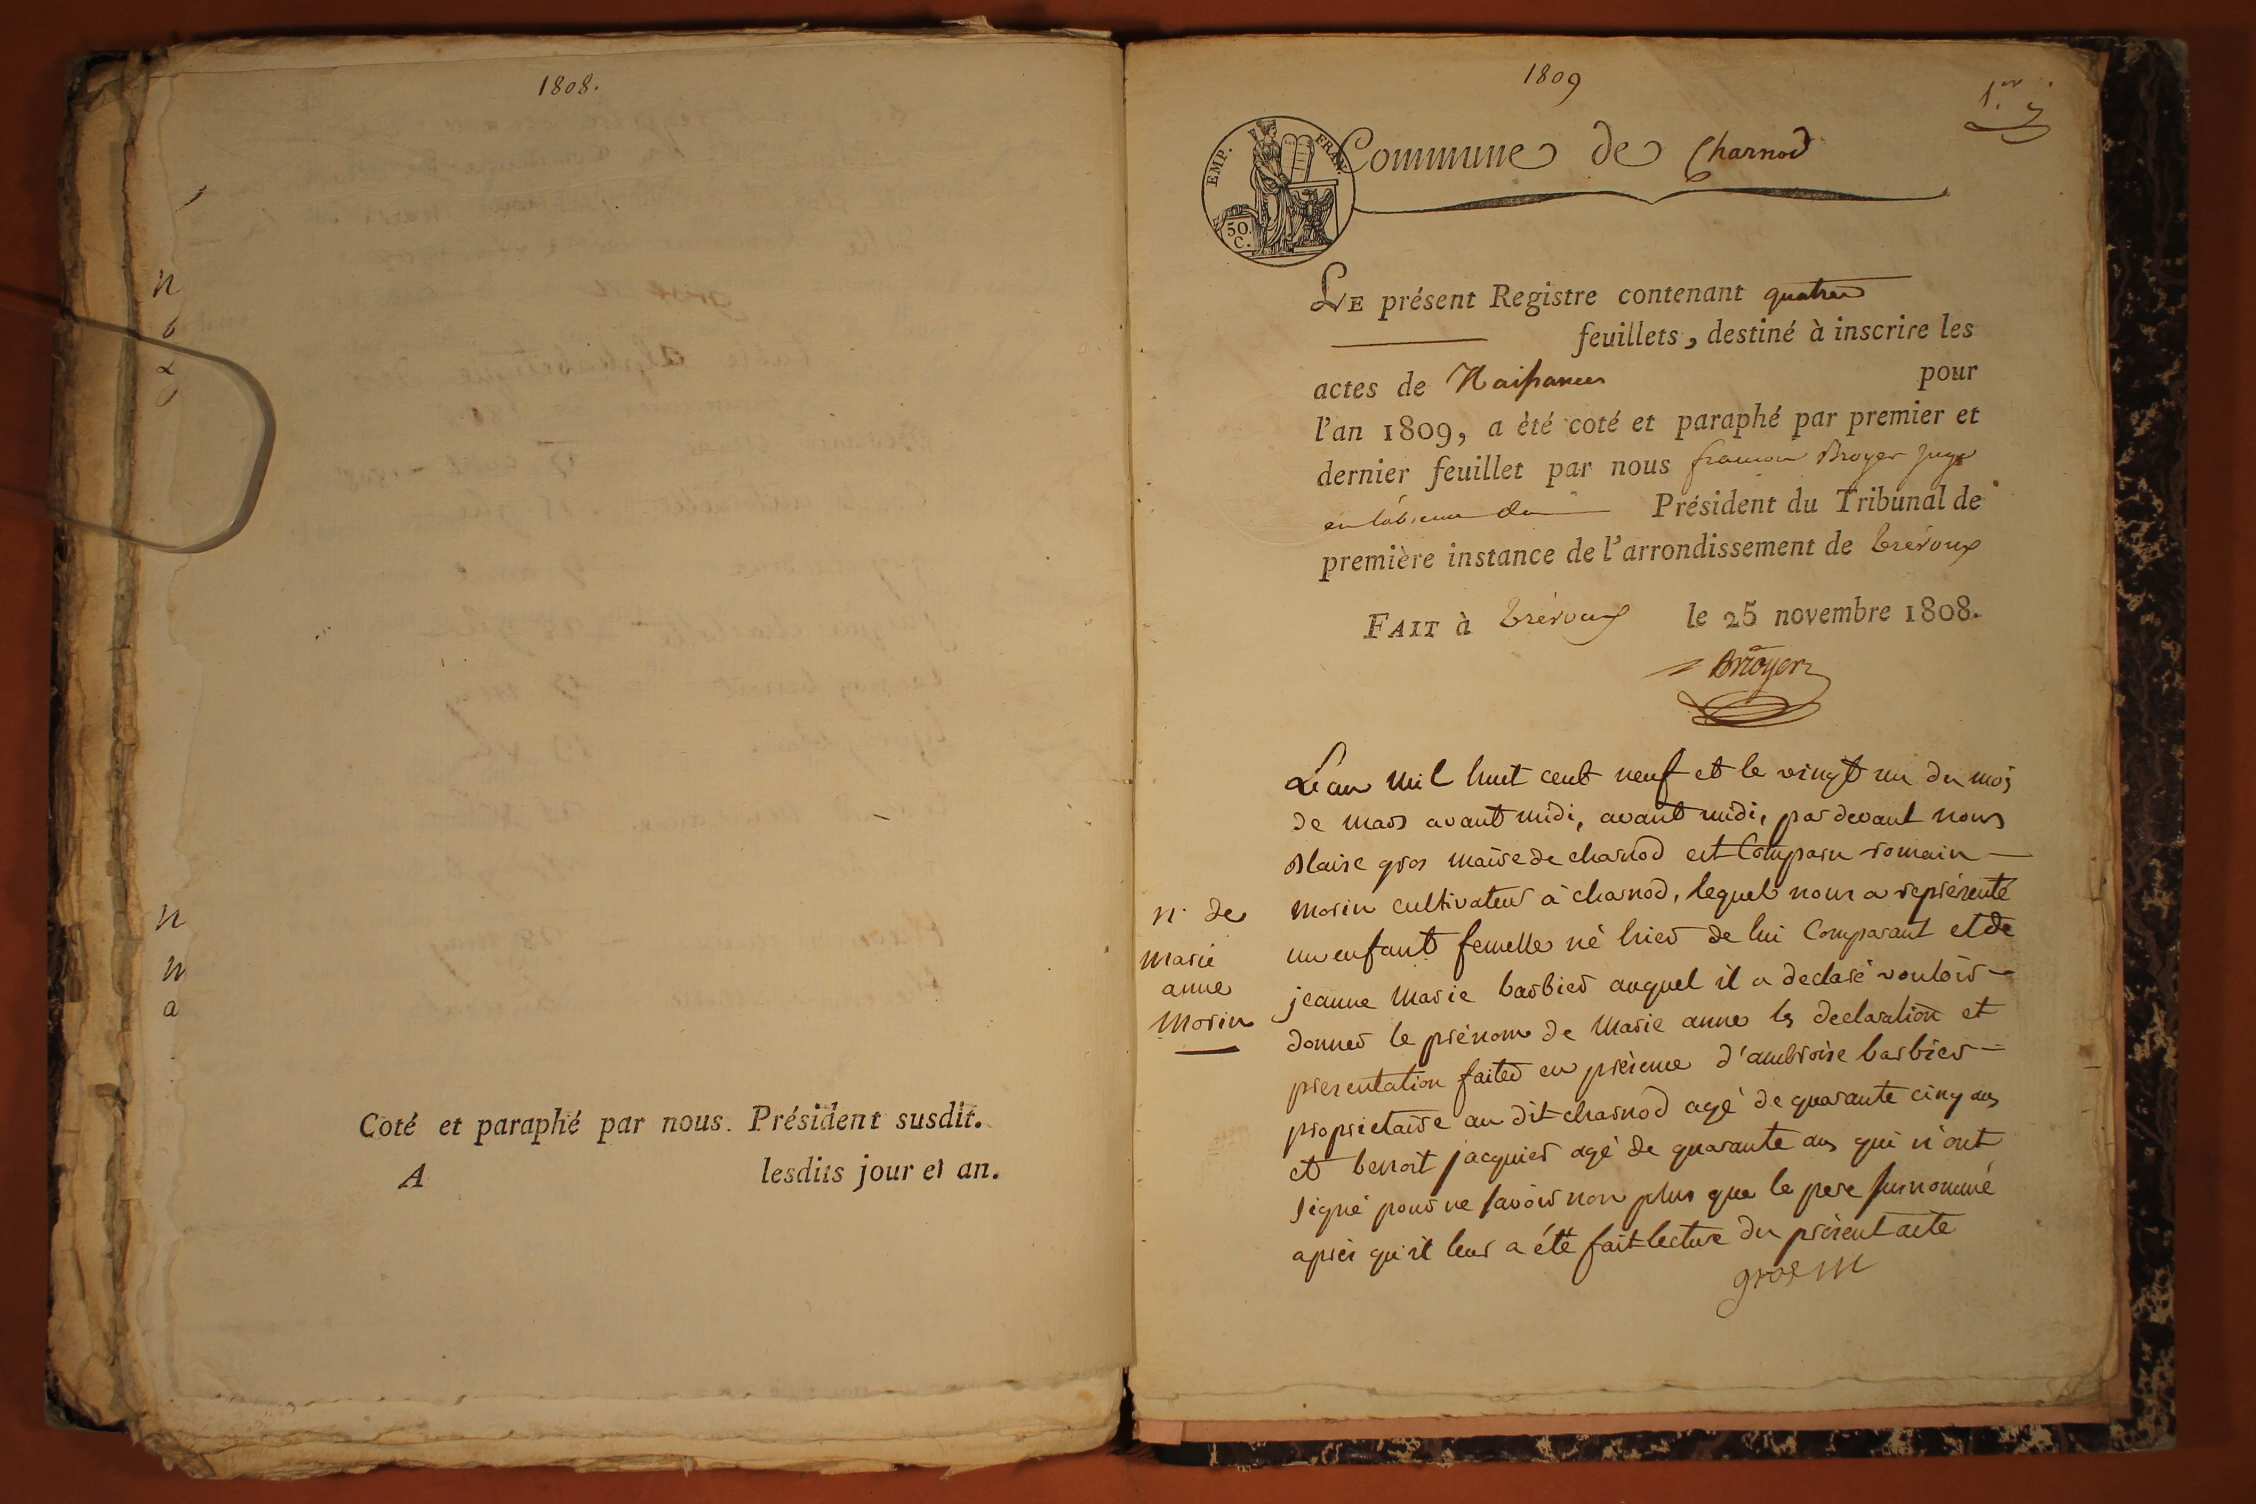 1808.
n
n
m
a
Coté et paraphé par nous. Président susdit.
A lesdits jour et an.
1809
1.er
EMP. FRAN.
50.
C.
Commune de Charnod
LE présent Registre contenant quatre
feuillets, destiné à inscrire les
actes de Naissances pour
l'an 1809, a été coté et paraphé par premier et
dernier feuillet par nous françois Broyer juge
en l'absence du Président du Tribunal de
première instance de l'arrondissement de trévoux
FAIT à trévoux le 25 novembre 1808.
Broyer
L'an mil huit cent neuf et le vingt un du mois
de mars avant midi, avant midi, par devant nous
Blaise gros maire de charnod est Comparu romain
morin cultivateur à charnod, lequel nous a représenté
un enfant femelle né hier de lui Comparant et de
jeanne Marie barbier auquel il a declaré vouloir
donner le prénom de Marie anne les declaration et
presentation faites en présence d'ambroise barbier
proprietaire au dit charnod agé de quarante cinq ans
et benoit jacquier agé de quarante ans qui n'ont
signé pour ne savoir non plus que le pere surnommé
après qu'il leur a été fait lecture du présent acte
gros m
n. de
Marie
anne
Morin